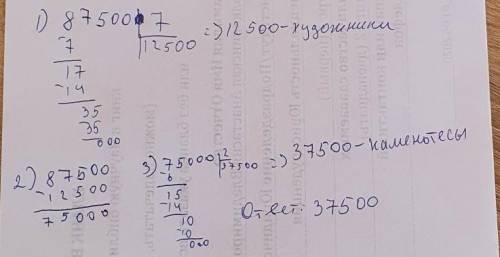 1) 87500 | 7 => 12500 - художники
-7 | 12500
17
-14
35
35
000
2) 87500
-12500
75000
3) 75000 | 2 => 37500 - каменотесы
-6 | 37500
15
-14
10
-10
000
Ответ: 37500